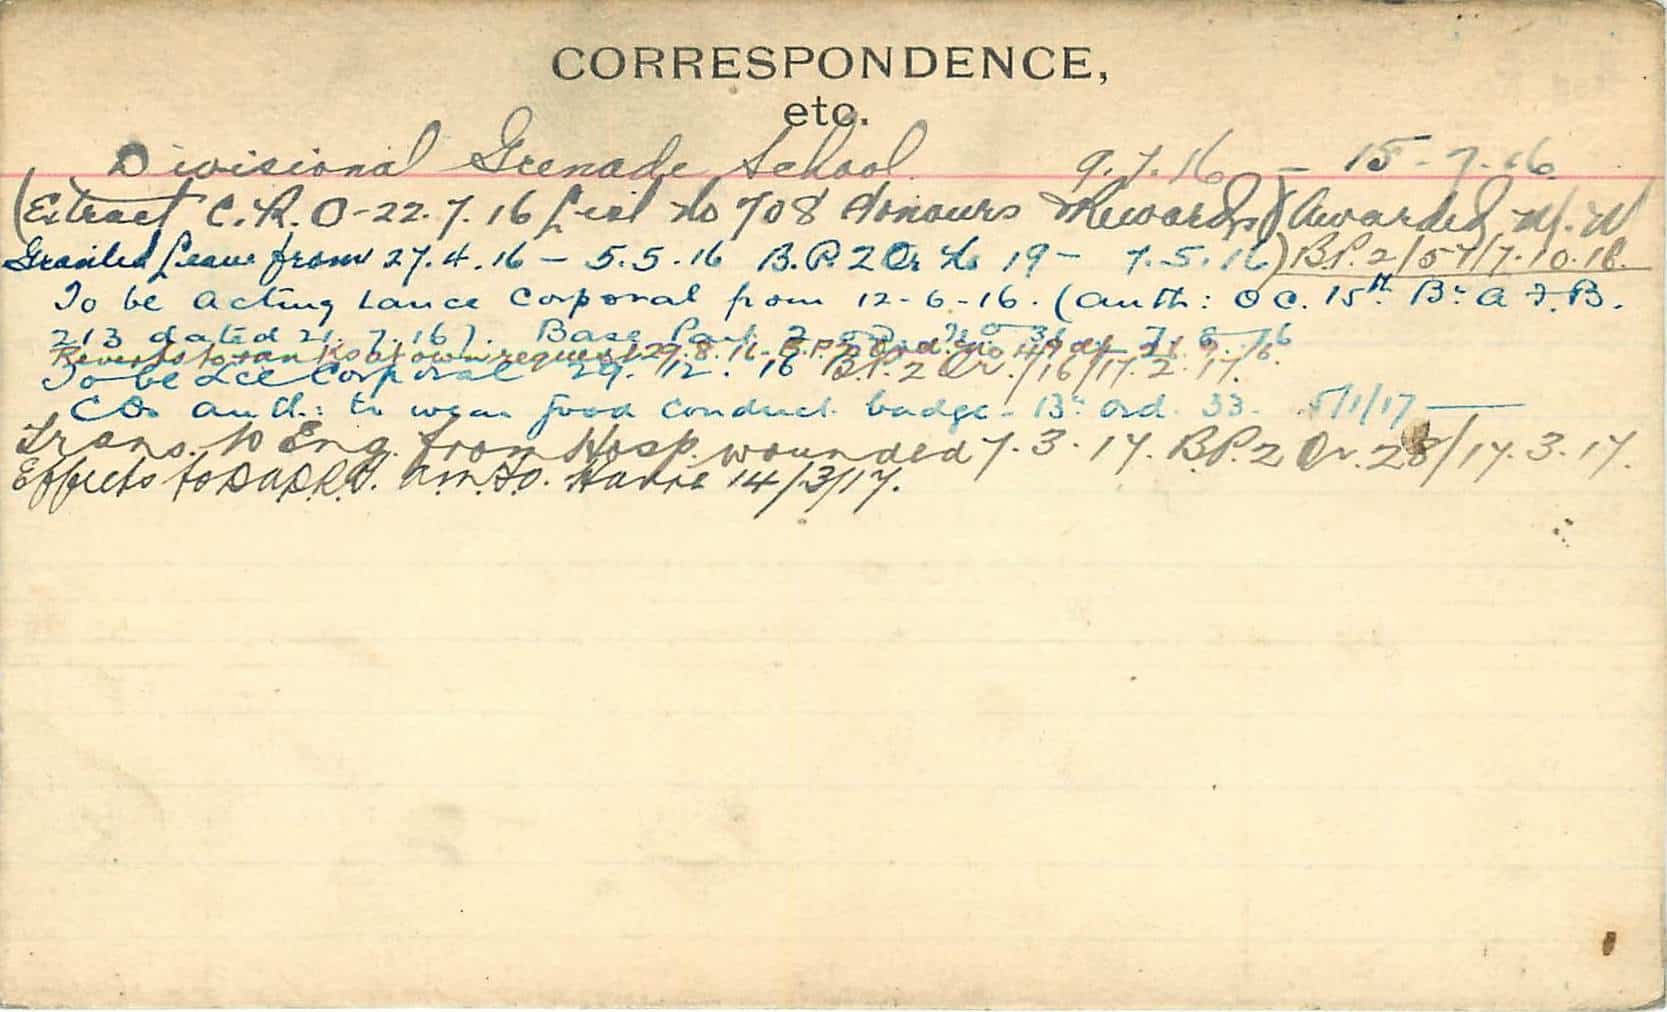 CORRESPONDENCE,
etc.
Divisional Grenade School 9.7.16 - 15-7-16.
(Extract C.R.O-22.7.16 List No 708 Honours Rewards) Awarded M.M
Granted Leave from 27.4.16 - 5.5.16 B.P.2 Or No 19 - 7.5.16) B.P.2/57/7.10.16.
To be Acting Lance Corporal from 12-6-16. (auth: O C. 15th Bn A.F.B.
213 dated 21.7.16). Base Part 2 Ord. No 39 d/- 7.8.16
Reverts to ranks at own request 29.8.16 - B.P.2 Ord. No
To be Lce Corporal 29.12.16 B.P.2 Or./16/17.2.17.
CO. auth: to wear good conduct badge - Bn Ord 33. 5/1/17
Trans. to Eng. from Hosp. wounded 7.3.17. B.P.2 Or. 28/17.3.17.
Effects to Havre 14/3/17.